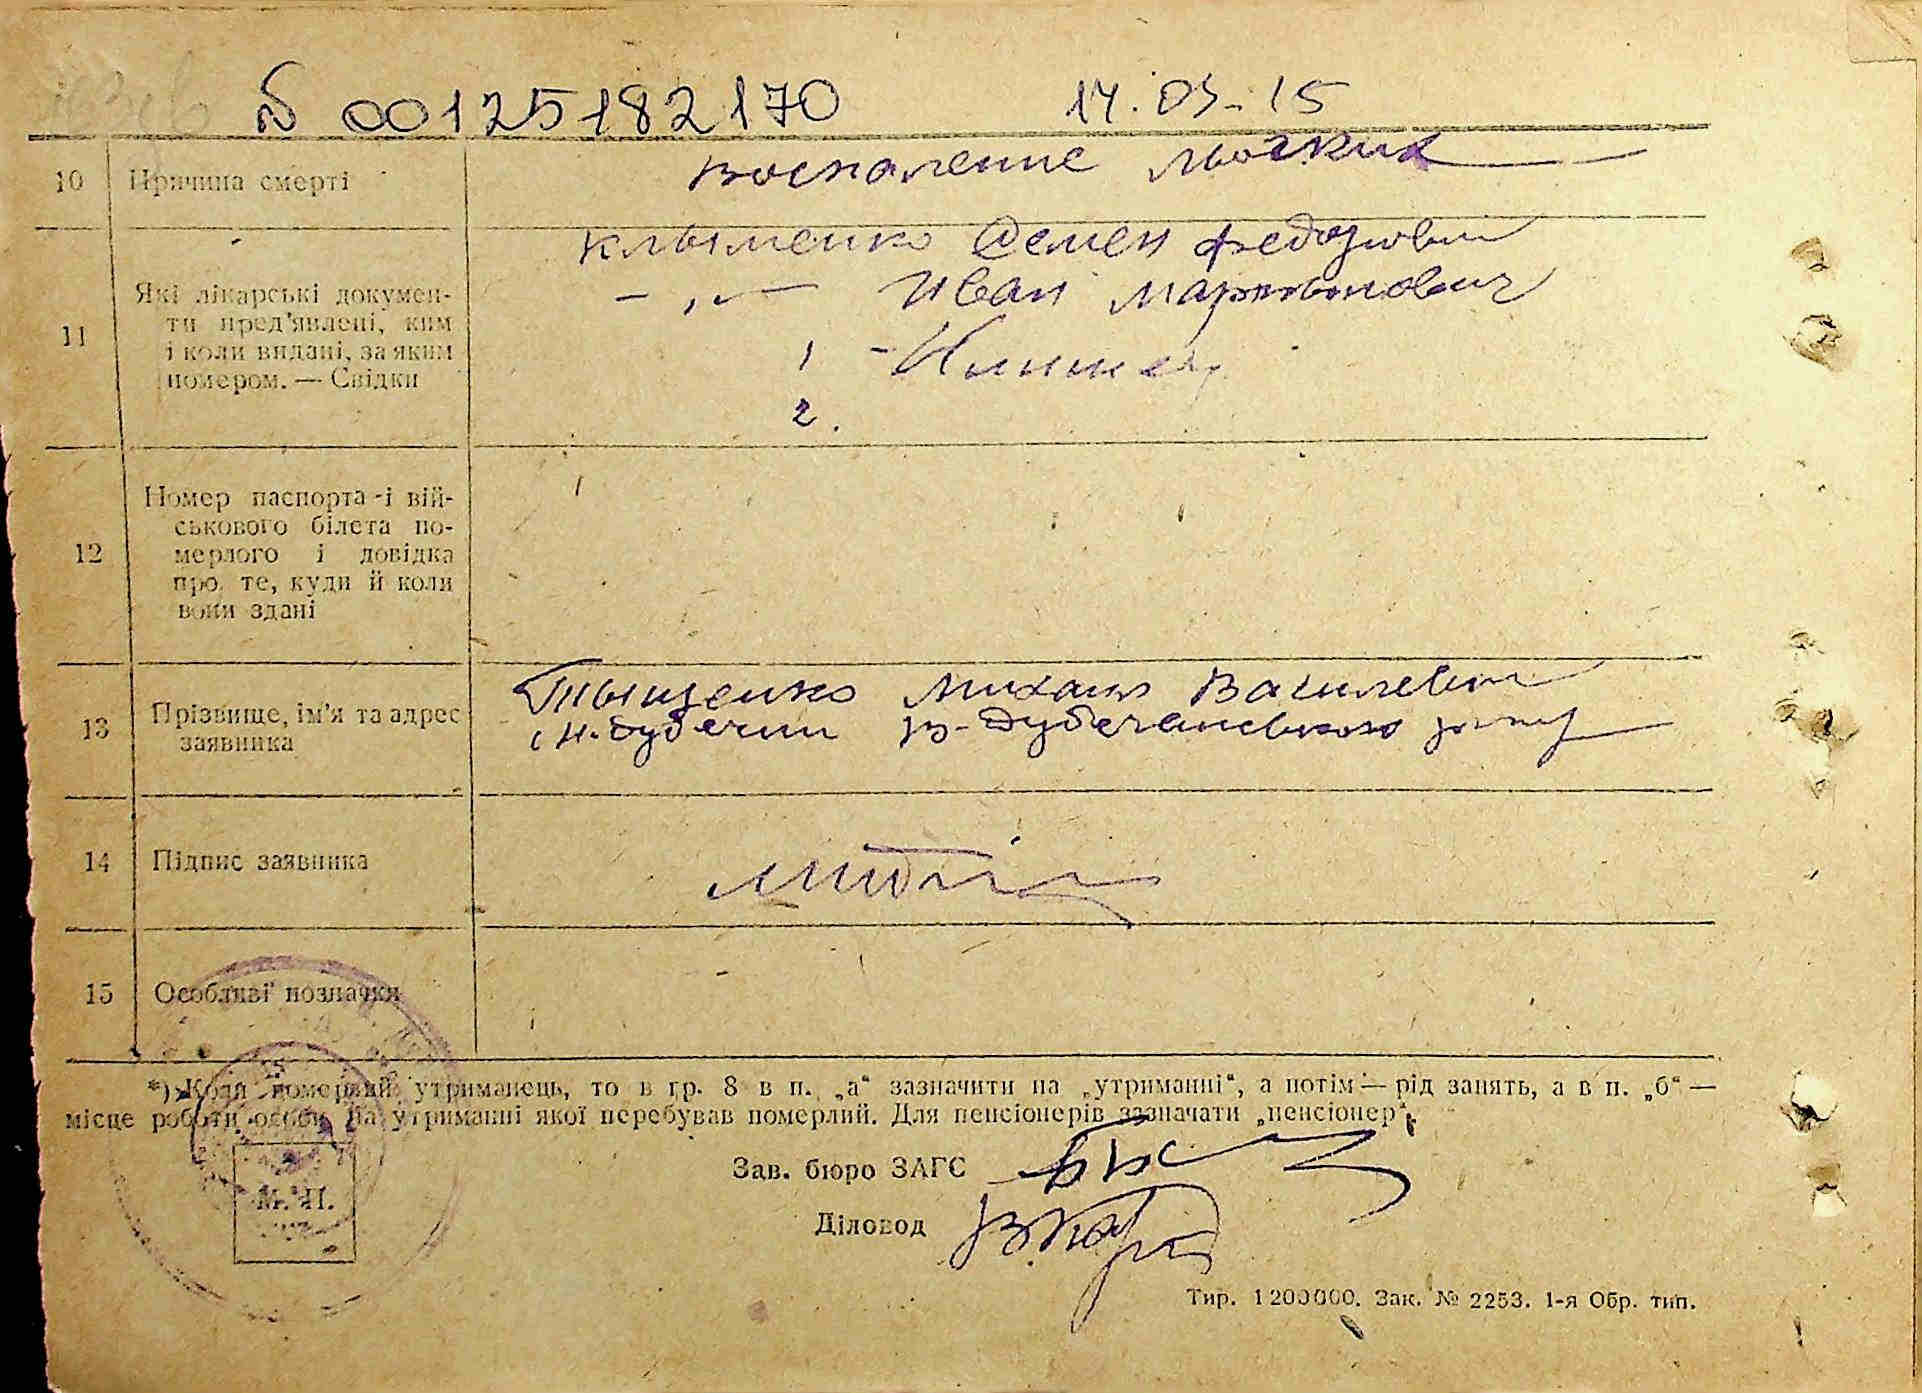 00125182170 14.05-15
10 Причина смерті
воспаление
11 Які лікарські докумен-
ти пред'явлені, ким
і коли видані, за яким
номером. — Свідки
клыменко Семен Федорович
— „ — Иван мартынович
1
2.
12 Номер паспорта і вій-
ськового білета по-
мерлого і довідка
про те, куди й коли
вони здані
13 Прізвище, ім'я та адрес
заявника
Тыщенко Михаил Василевич
14 Підпис заявника
15 Особливі позначки
*) Коли померлий утриманець, то в гр. 8 в п. „а“ зазначити на „утриманні“, а потім — рід занять, а в п. „б“ —
місце роботи особи на утриманні якої перебував померлий. Для пенсіонерів зазначати „пенсіонер“.
Зав. бюро ЗАГС
Діловод
М. П.
Тир. 1200000. Зак. № 2253. 1-я Обр. тип.